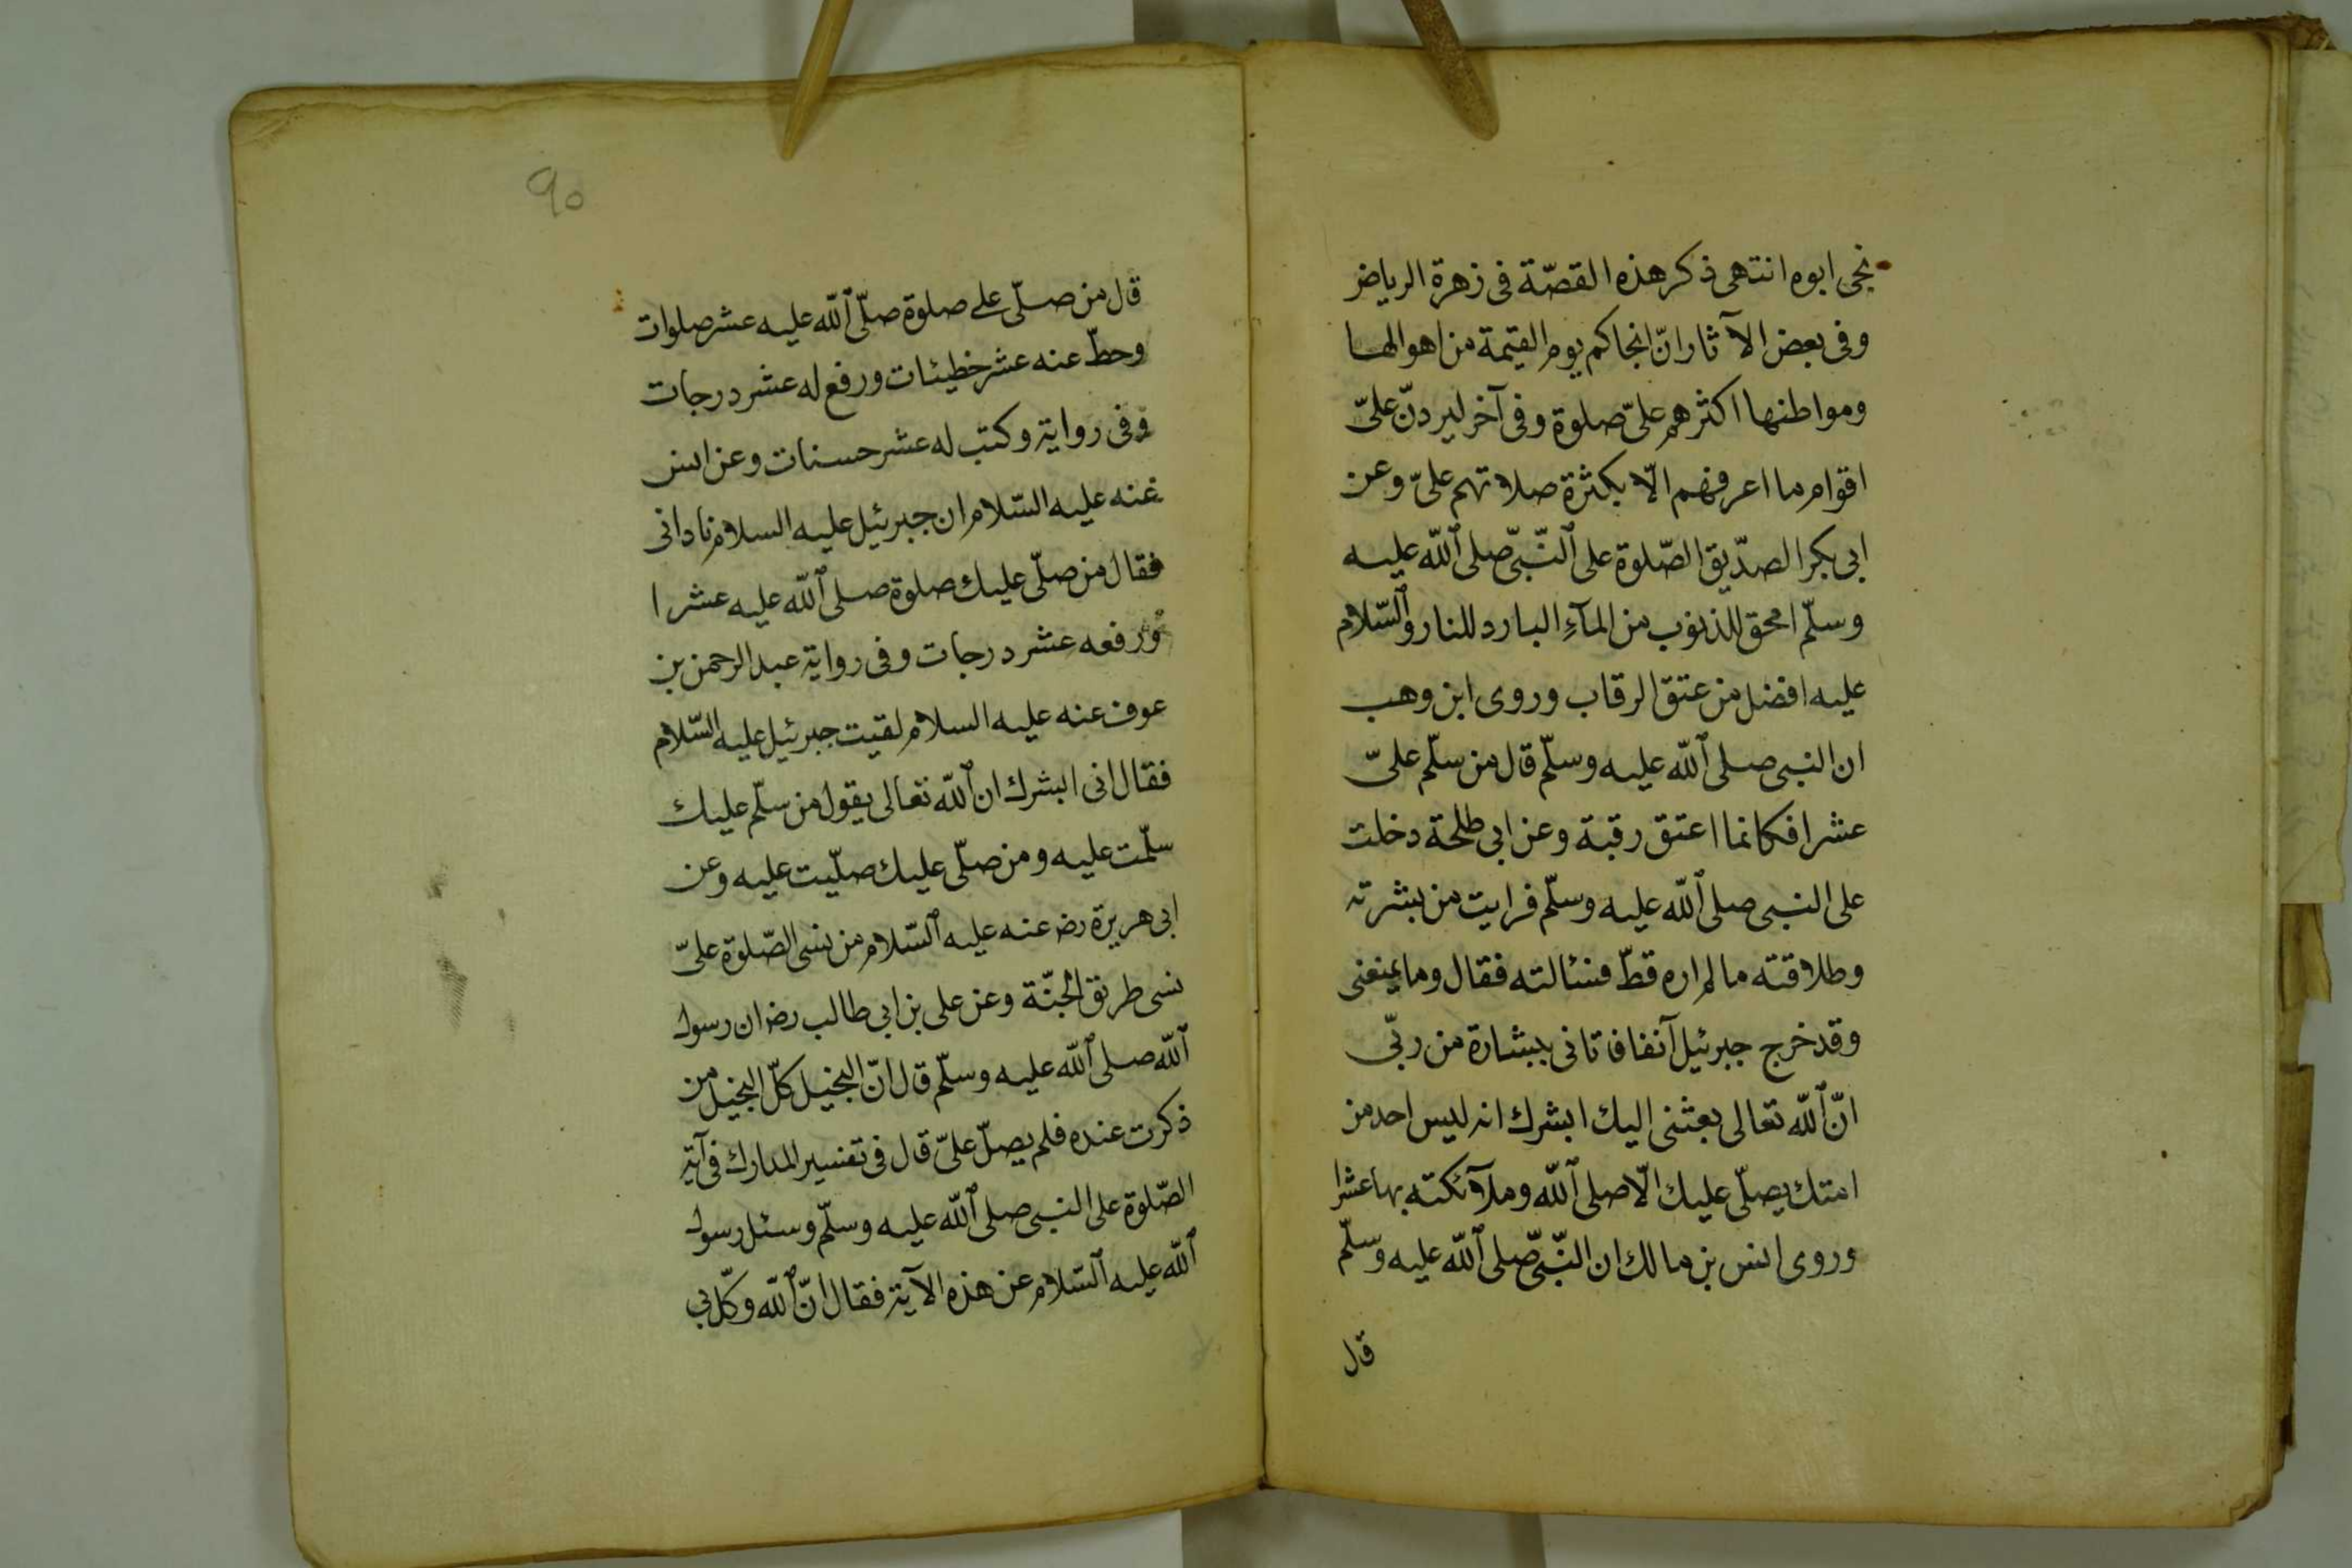 نجى ابوه انتهى ذكر هذه القصّة فى زهرة الرياض
وفى بعض الآثار انّ انجاكم يوم القيمة من اهوالها
ومواطنها اكثرهم علىّ صلوة وفى آخر ليردنّ علىّ
اقوام ما اعرفهم الّا بكثرة صلاتهم علىّ وعن
ابى بكر الصدّيق الصّلوة على النّبىّ صلى الله عليه
وسلّم امحق للذنوب من المآءِ البارد للنار والسّلام
عليه افضل من عتق الرقاب وروى ابن وهب
ان النبى صلى الله عليه وسلّم قال من سلّم علىّ
عشرا فكانما اعتق رقبة وعن ابى طلحة دخلت
على النبى صلى الله عليه وسلّم فرايت من بشرته
وطلاقته ما لم اره قطّ فسئالته فقال وما يمنعنى
وقد خرج جبرئيل آنفا فاتانى ببشارة من ربّى
انّ الله تعالى بعثنى اليك ابشرك انه ليس احد من
امتك يصلّى عليك الّا صلى الله وملآئكته بها عشرا
وروى انس بن مالك ان النّبىّ صلى الله عليه وسلّم
قال
90
قال من صلّى على صلوة صلّى الله عليه عشر صلوات
وحطّ عنه عشر خطيئات ورفع له عشر درجات
وفى رواية وكتب له عشر حسنات وعن انس
عنه عليه السّلام ان جبرئيل عليه السلام نادانى
فقال من صلّى عليك صلوة صلى الله عليه عشرا
ورفعه عشر درجات وفى رواية عبد الرحمن بن
عوف عنه عليه السلام لقيت جبرئيل عليه السّلام
فقال انى ابشرك ان الله تعالى يقول من سلّم عليك
سلّمت عليه ومن صلّى عليك صلّيت عليه وعن
ابى هريرة رضـ عنه عليه السّلام من نسى الصّلوة علىّ
نسى طريق الجنّة وعن على بن ابى طالب رضـ ان رسول
الله صلى الله عليه وسلّم قال انّ البخيل كلّ البخيل من
ذكرت عنده فلم يصلّ علىّ قال فى تفسير المدارك فى آية
الصّلوة على النبى صلى الله عليه وسلّم وسئل رسول
الله عليه السّلام عن هذه الآية فقال انّ الله وكّل بى